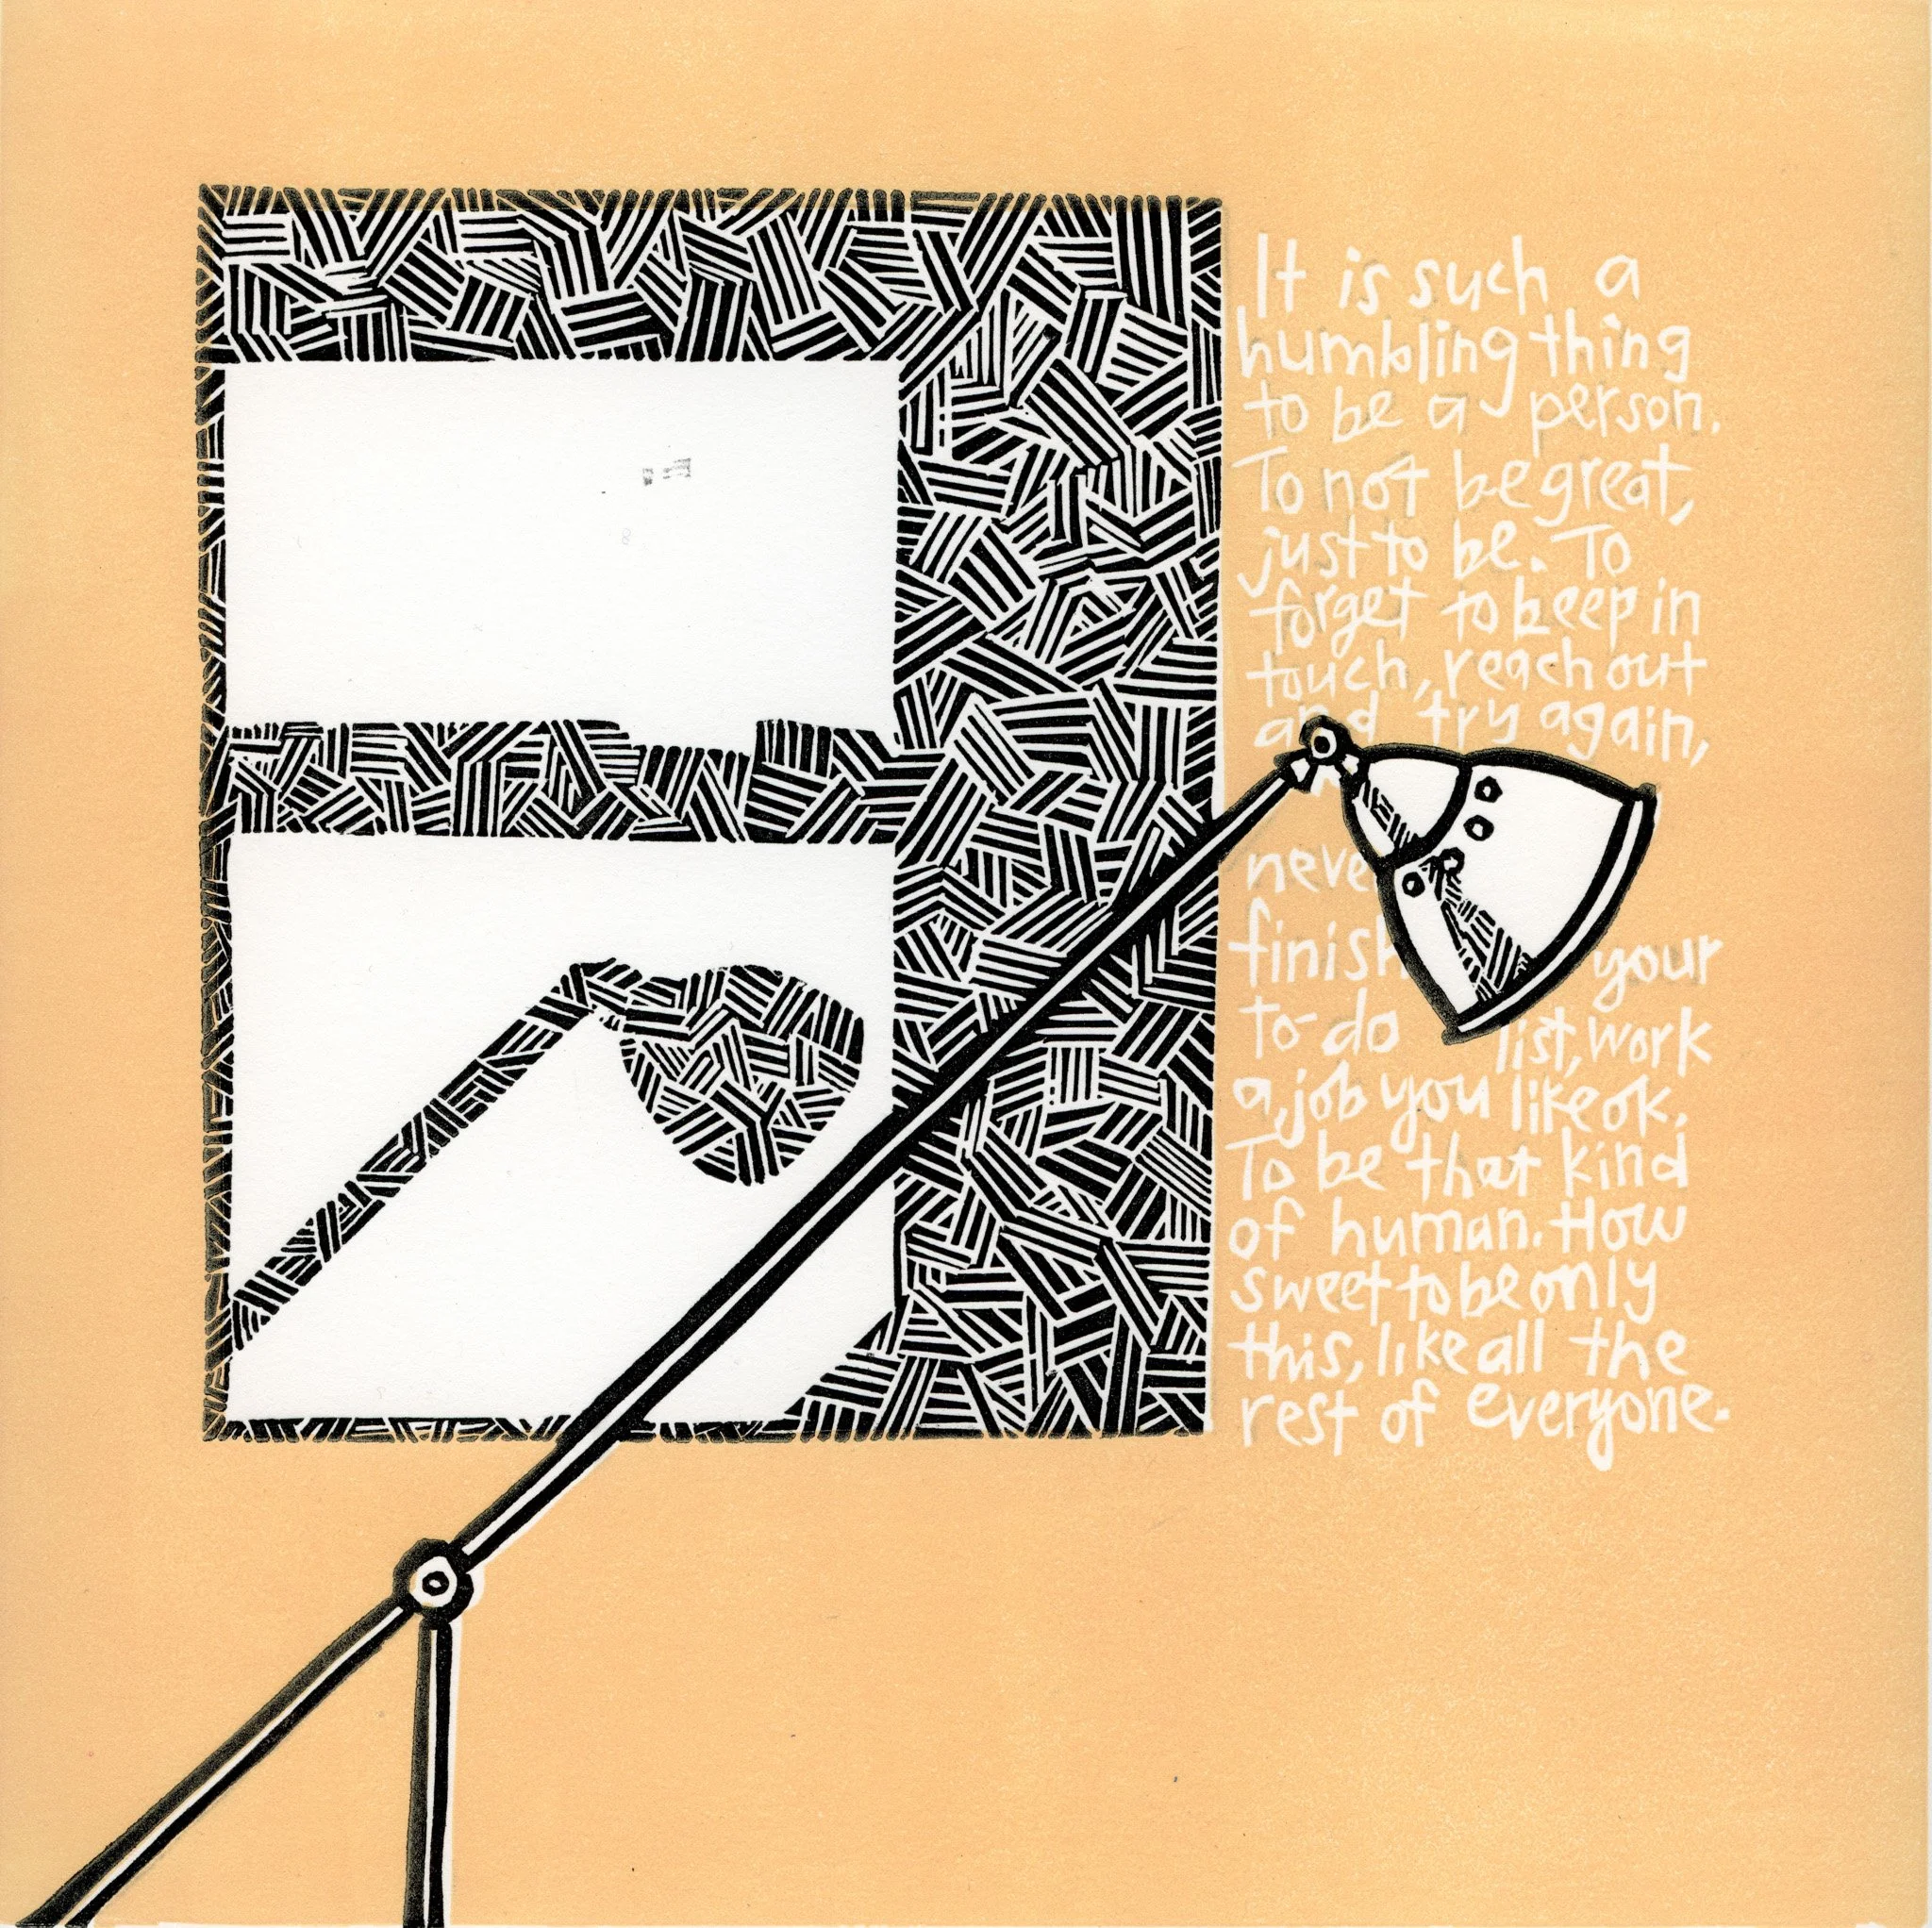 It is such a
humbling thing
to be a person.
To not be great,
just to be. To
forget to keep in
touch, reach out
and try again,
neve
finish your
to-do list, work
a job you like ok.
To be that kind
of human. How
sweet to be only
this, like all the
rest of everyone.